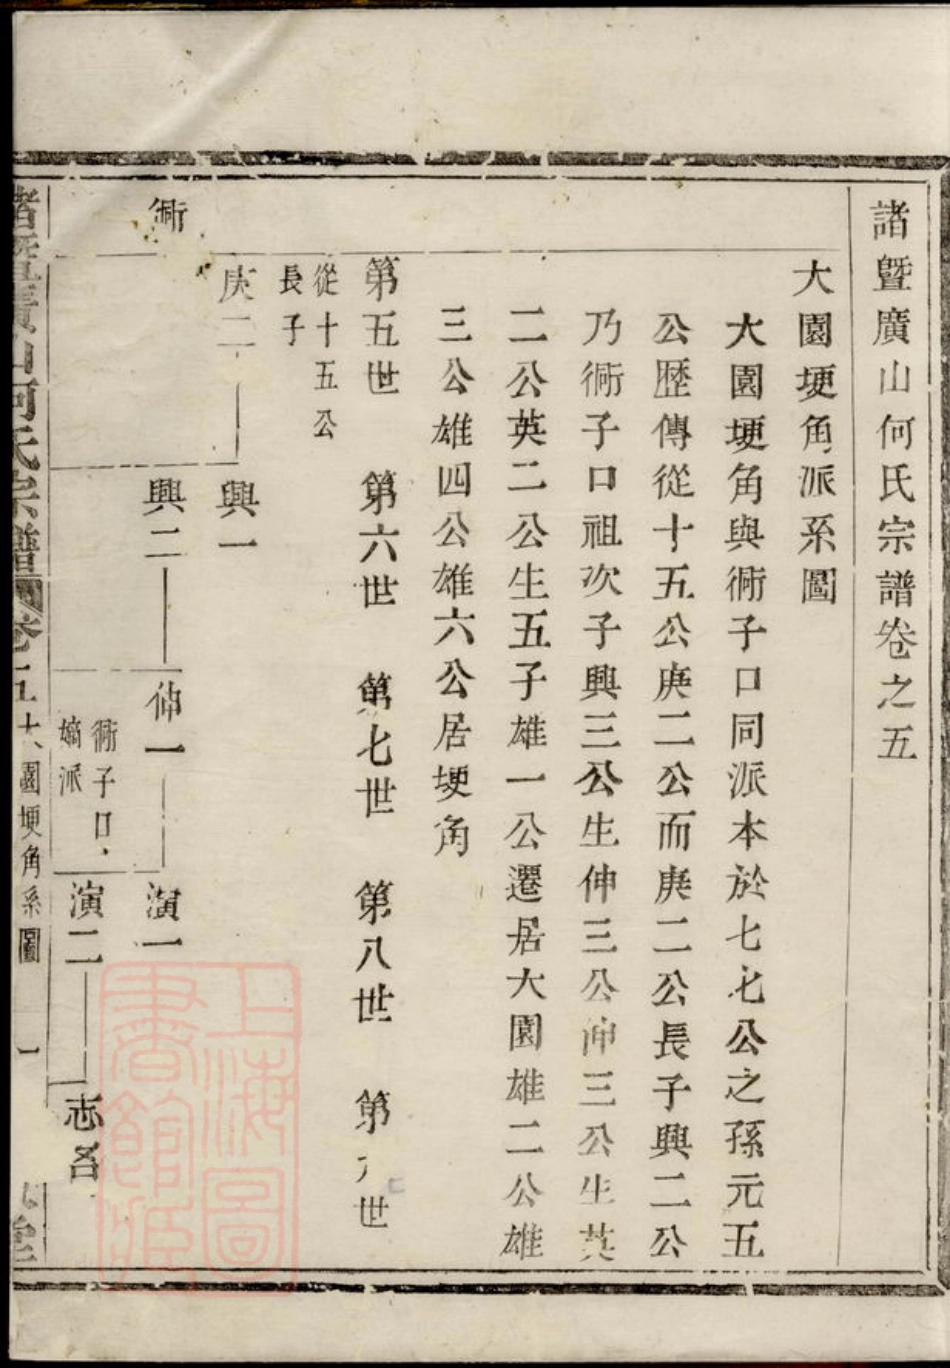 諸曁廣山何氏宗譜卷之五
大園埂角派系圖
大園埂角與衕子口同派本於七七公之孫元五
公歴傳從十五公庚二公而庚二公長子興二公
乃衕子口祖次子興三公生伸三公伸三公生英
二公英二公生五子雄一公遷居大園雄二公雄
三公雄四公雄六公居埂角
第五世 第六世 第七世 第八世 第九世
從十五公
長子
庚二 興一
衕
興二 伸一 演一
衕子口
嫡派
演二
諸曁廣山何氏宗譜 卷五 大園埂角系圖 一
上海圖書館藏